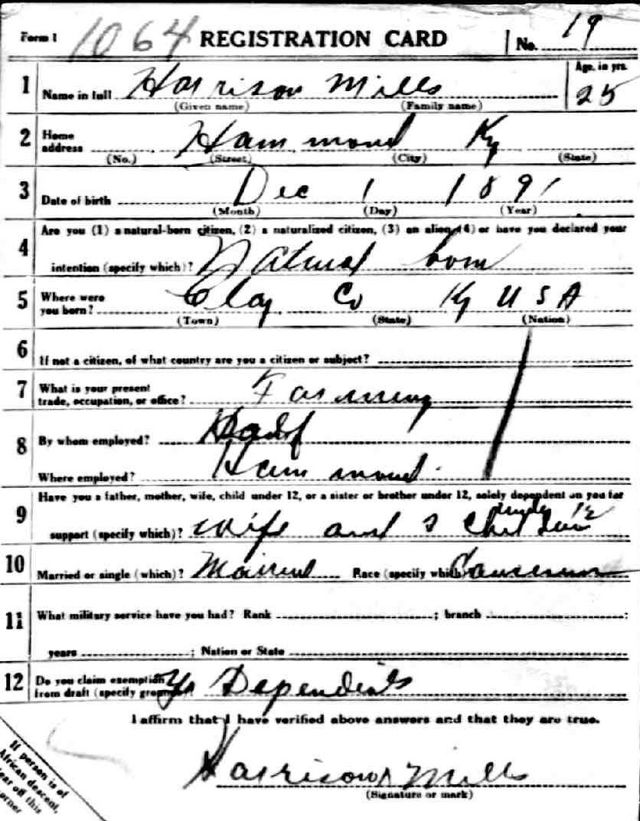 Form 1 1064 REGISTRATION CARD No. 19
1 Name in full Harrison Mills Age, in yrs. 25
(Given name) (Family name)
2 Home address Hammond Ky
(No.) (Street) (City) (State)
3 Date of birth Dec 1 1891
(Month) (Day) (Year)
4 Are you (1) a natural-born citizen, (2) a naturalized citizen, (3) an alien, (4) or have you declared your
intention (specify which)? Natural born
5 Where were you born? Clay Co Ky USA
(Town) (State) (Nation)
6 If not a citizen, of what country are you a citizen or subject?
7 What is your present trade, occupation, or office? Farming
8 By whom employed?
Where employed? Hammond
9 Have you a father, mother, wife, child under 12, or a sister or brother under 12, solely dependent on you for
under 12
support (specify which)? wife and children
10 Married or single (which)? Married Race (specify which)? Caucasian
11 What military service have you had? Rank ; branch ;
years ; Nation or State
12 Do you claim exemption from draft (specify grounds)? Yes Dependents
I affirm that I have verified above answers and that they are true.
Harrison Mills
(Signature or mark)
If person is of
African descent,
tear off this
corner